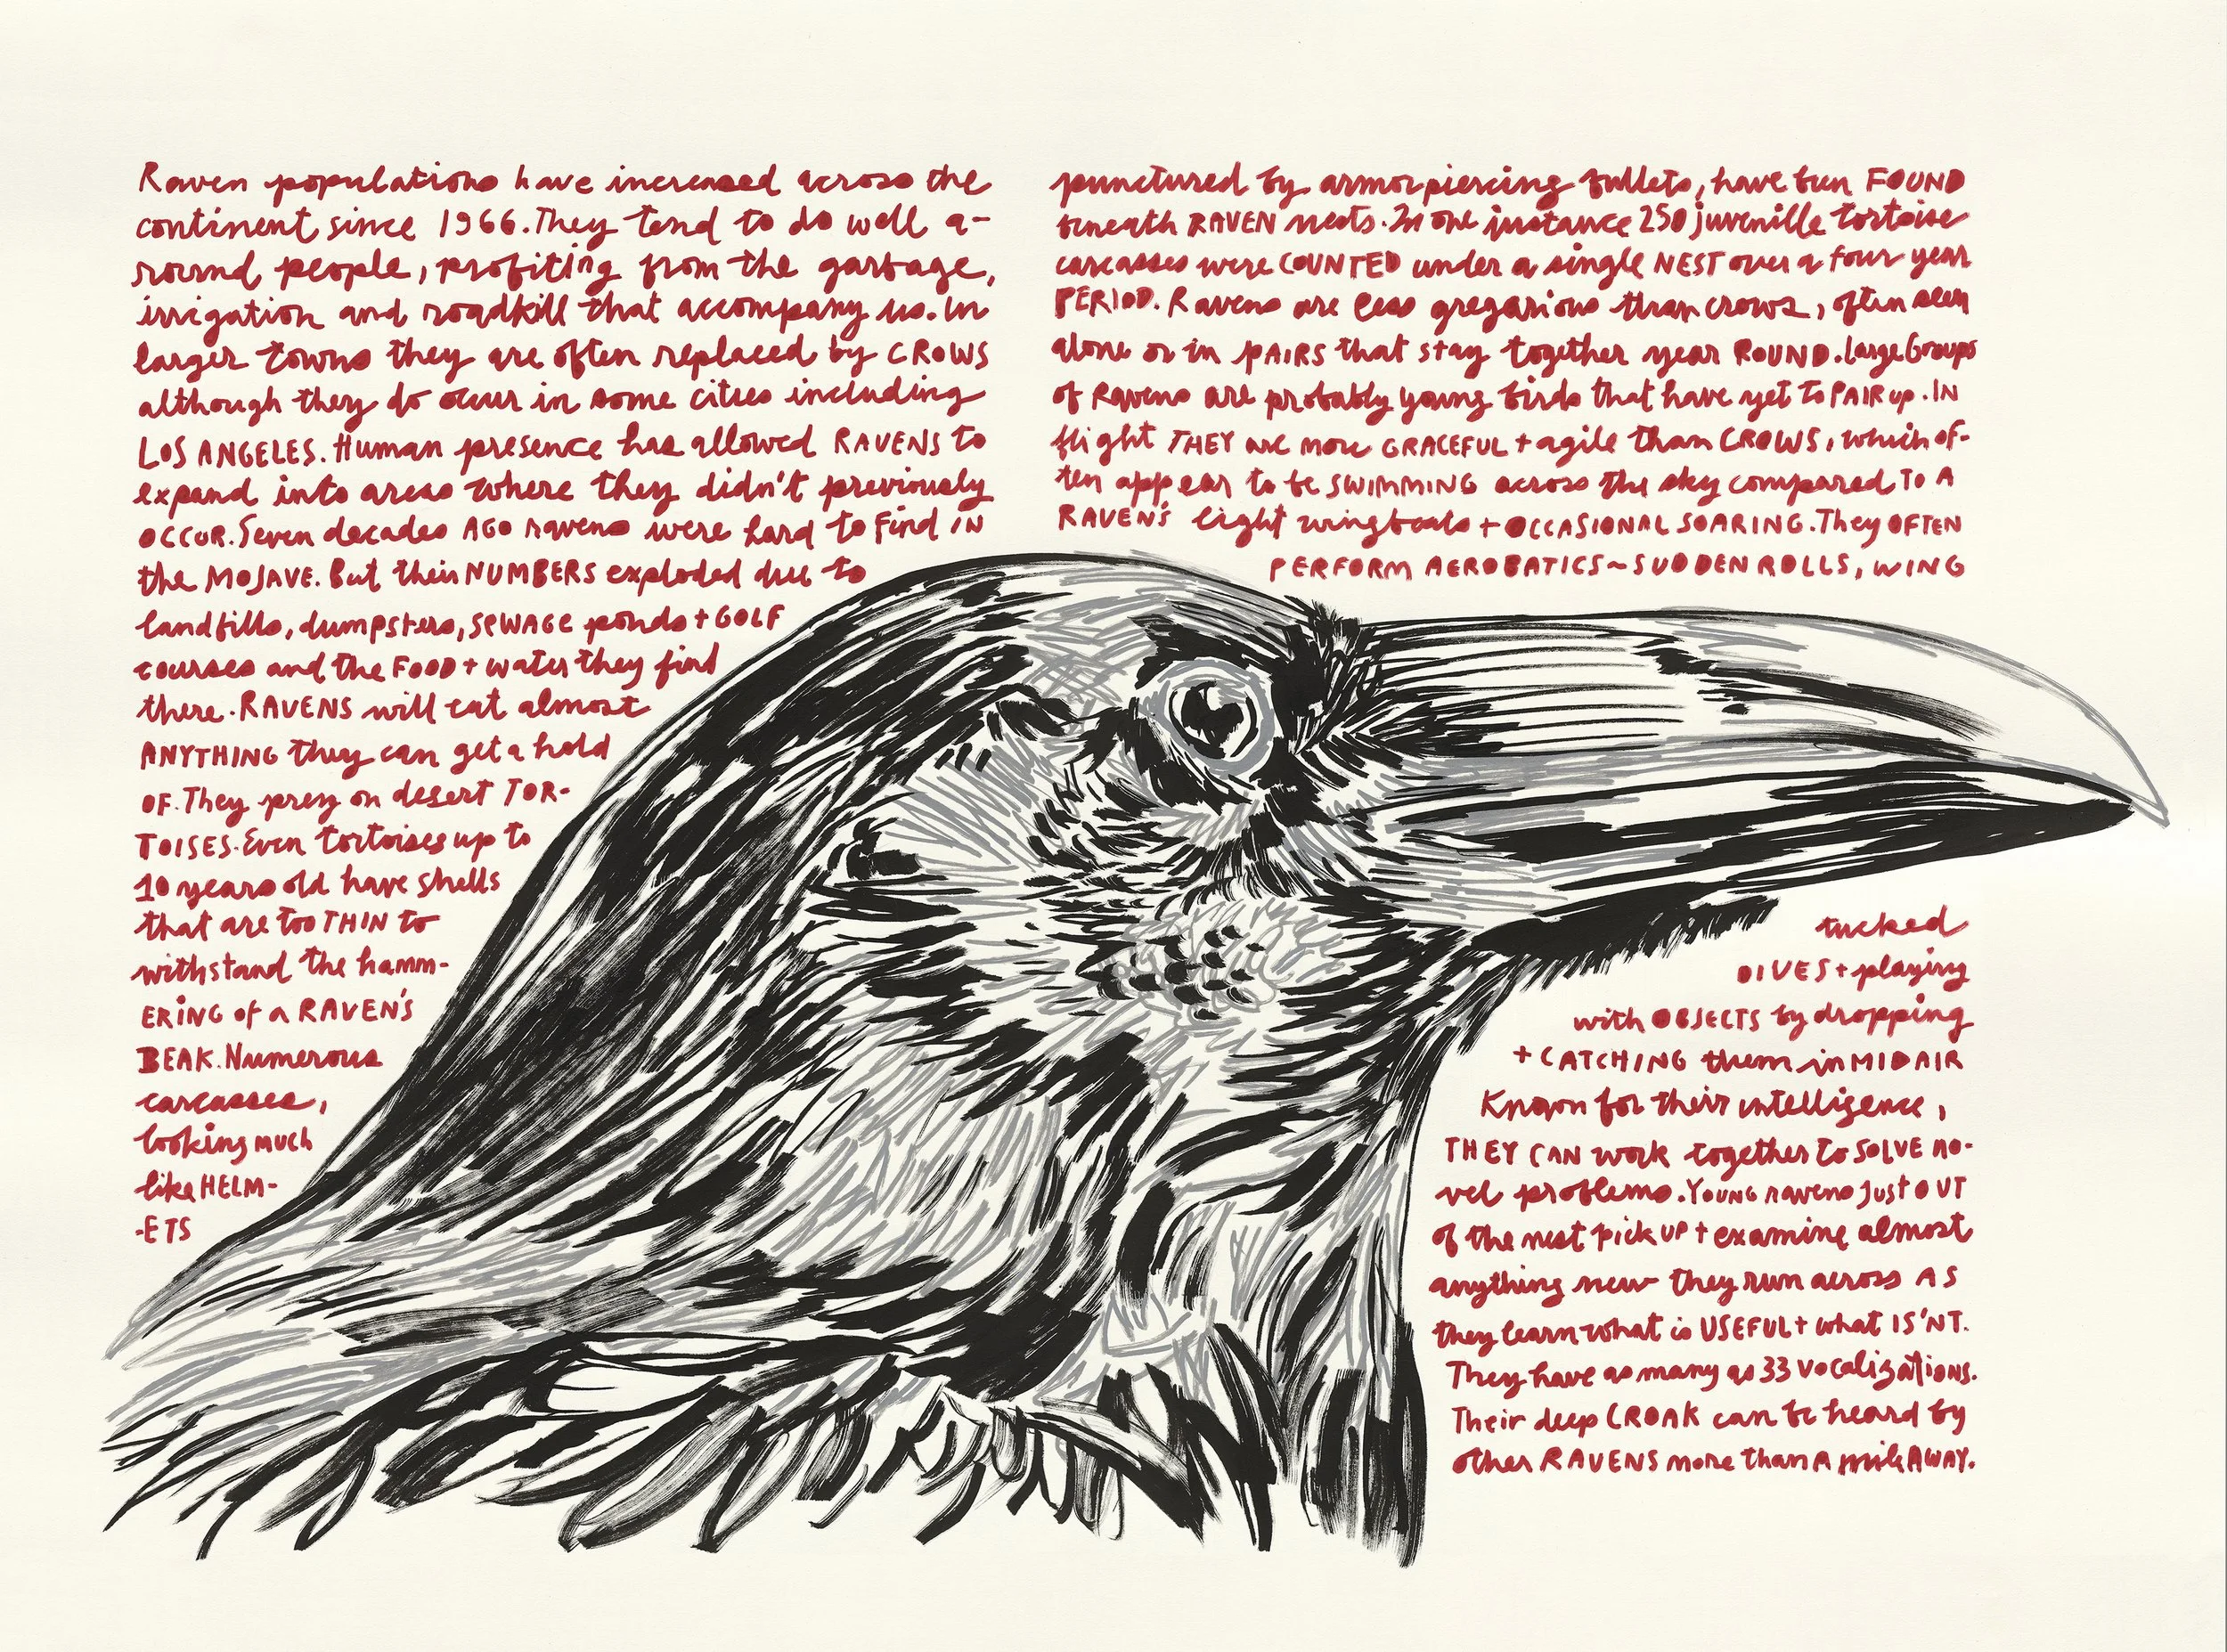 Raven populations have increased across the
continent since 1966. They tend to do well a-
round people, profiting from the garbage,
irrigation and roadkill that accompany us. In
larger towns they are often replaced by CROWS
although they do occur in some cities including
LOS ANGELES. Human presence has allowed RAVENS to
expand into areas where they didn't previously
OCCUR. Seven decades AGO ravens were hard to Find IN
the MOJAVE. But their NUMBERS exploded due to
landfills, dumpsters, SEWAGE ponds + GOLF
courses and the FOOD + water they find
there. RAVENS will eat almost
ANYTHING they can get a hold
OF. They prey on desert TOR-
TOISES. Even tortoises up to
10 years old have shells
that are too THIN to
withstand the hamm-
ERING of a RAVEN'S
BEAK. Numerous
carcasses,
looking much
like HELM-
-ETS
punctured by armor piercing bullets, have been FOUND
beneath RAVEN nests. In one instance 250 juvenille tortoise
carcasses were COUNTED under a single NEST over a four year
PERIOD. Ravens are less gregarious than crows, often seen
alone or in PAIRS that stay together year ROUND. Large Groups
of Ravens are probably young birds that have yet to PAIR up. IN
flight THEY are more GRACEFUL + agile than CROWS, which of-
ten appear to be SWIMMING across the sky compared TO A
RAVEN'S light wingbeats + OCCASIONAL SOARING. They OFTEN
PERFORM AEROBATICS ~ SUDDEN ROLLS, WING
tucked
DIVES + playing
with OBJECTS by dropping
+ CATCHING them in MIDAIR
Known for their intelligence,
THEY CAN work together to SOLVE no-
vel problems. YOUNG ravens just OUT
of the nest pick UP + examine almost
anything new they run across AS
they learn what is USEFUL + what IS'NT.
They have as many as 33 vocalizations.
Their deep CROAK can be heard by
other RAVENS more than A mile AWAY.